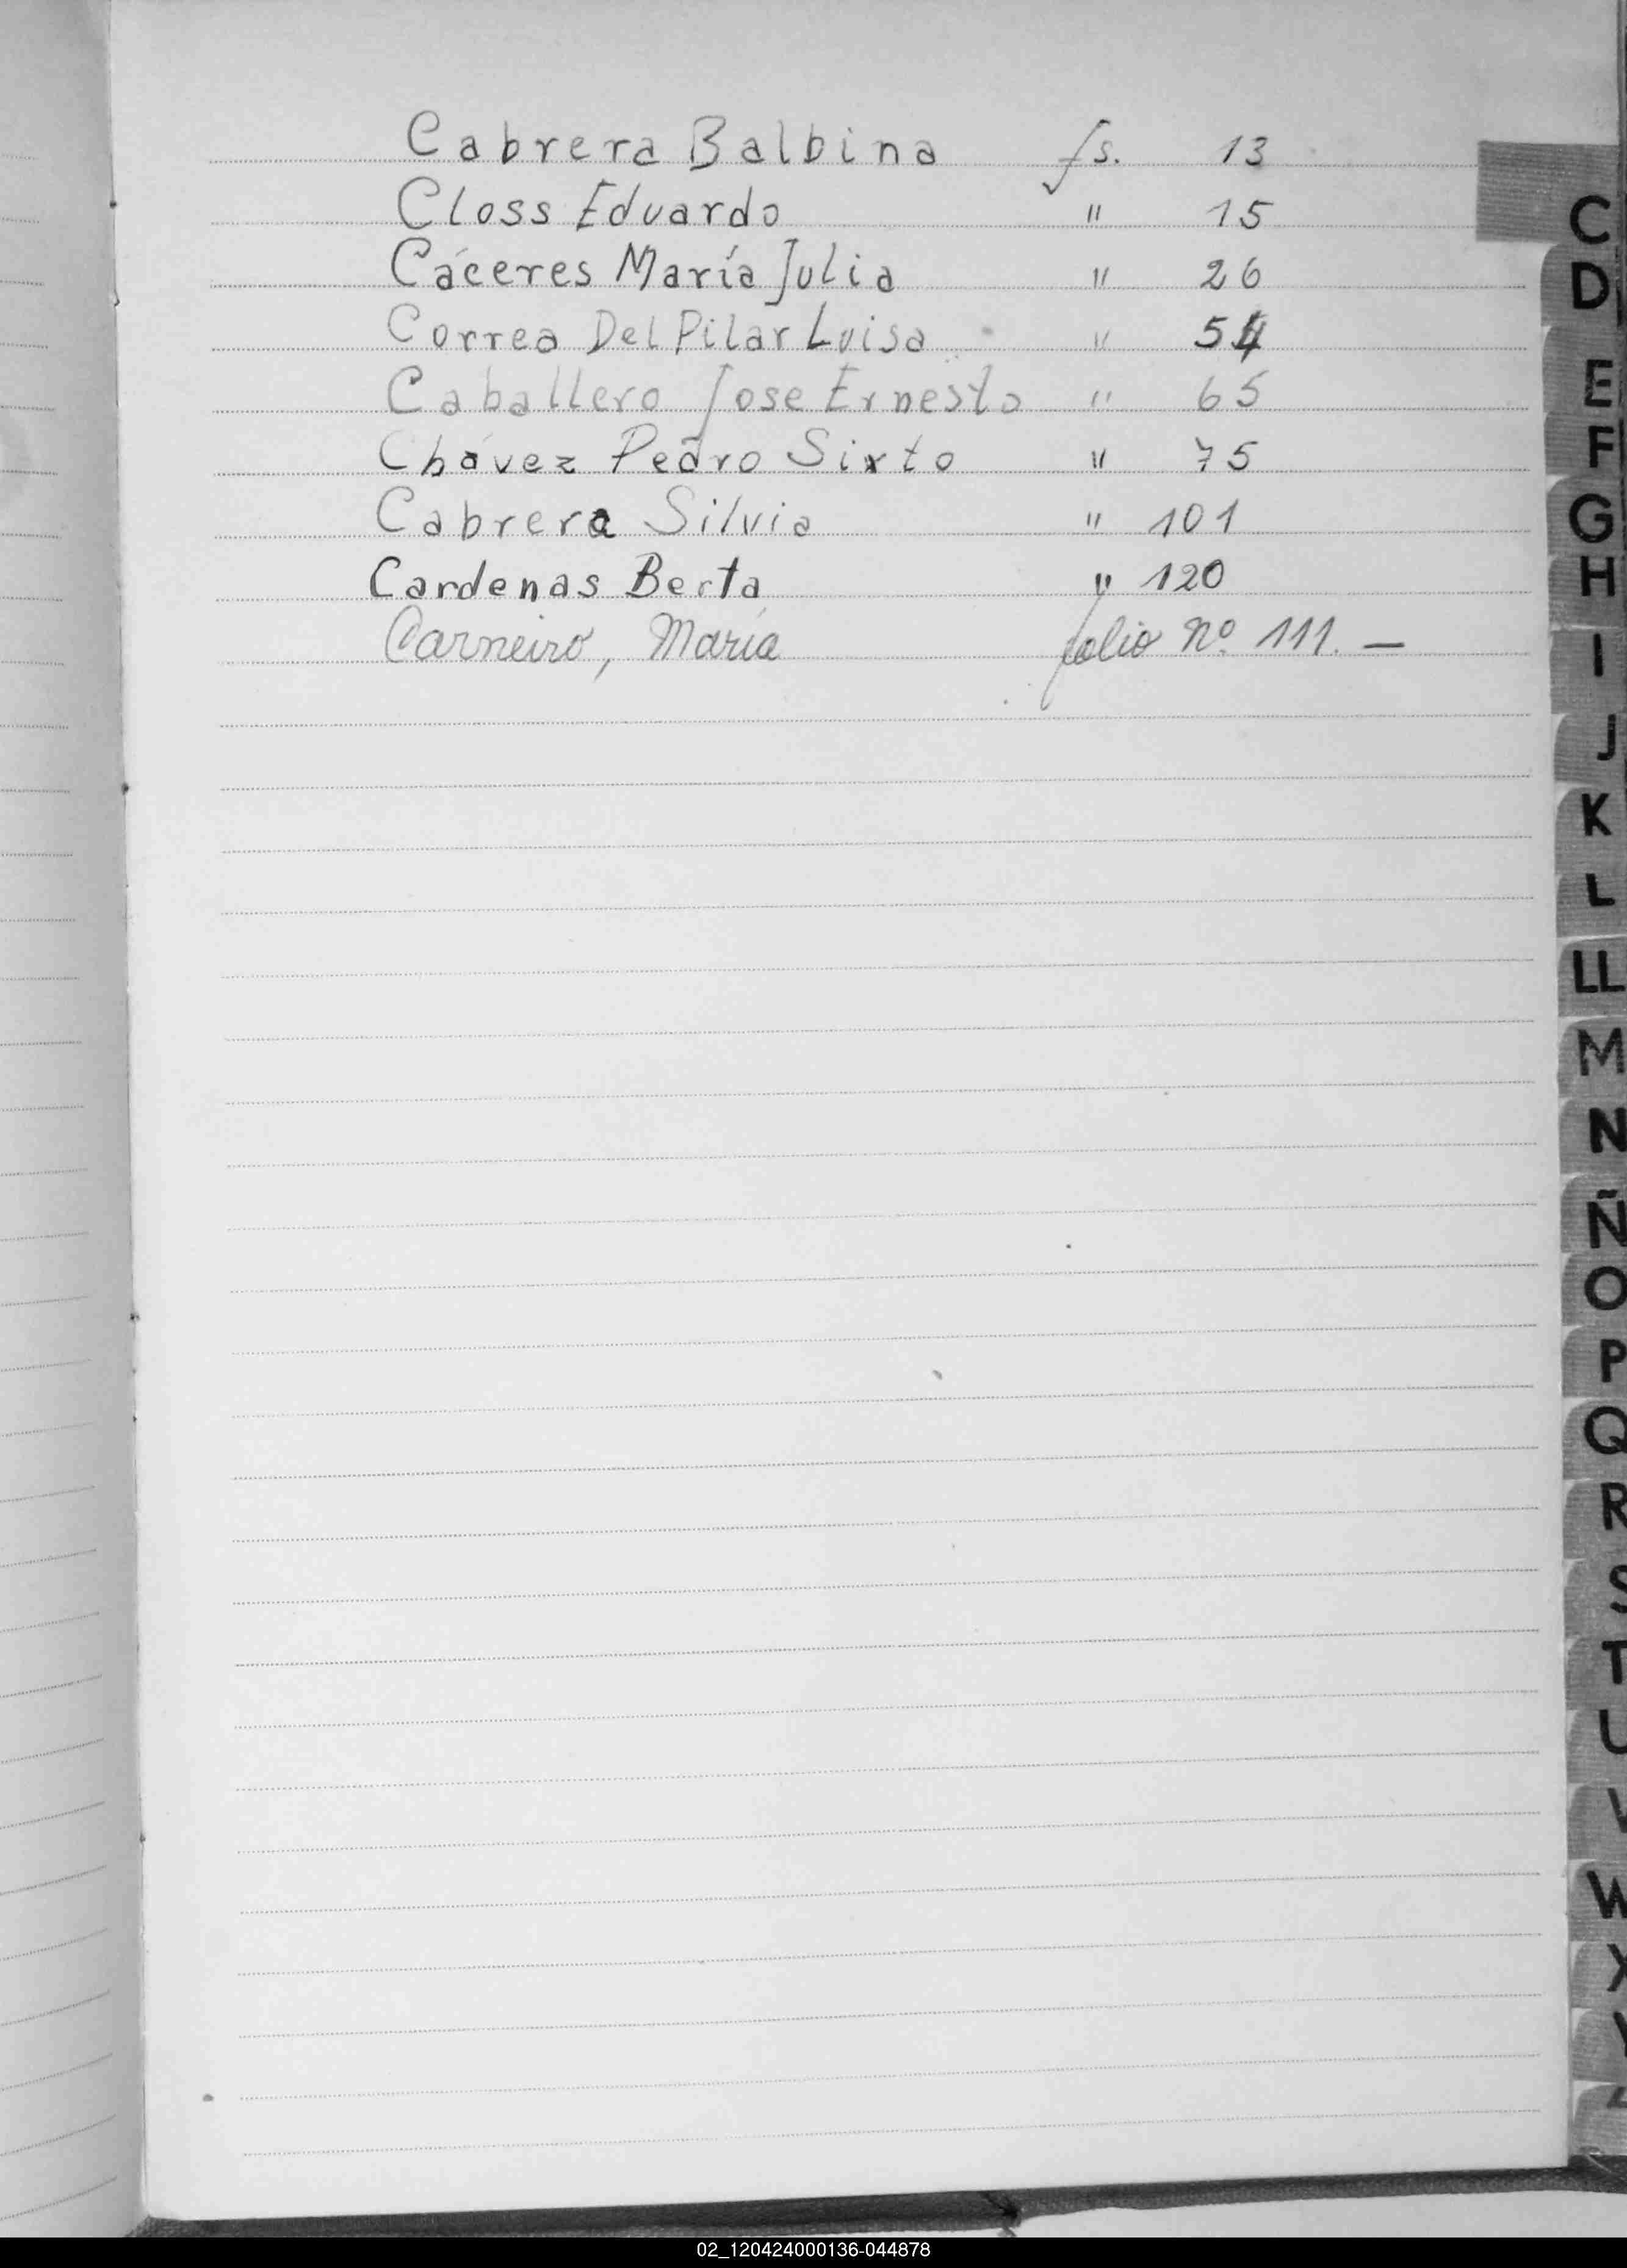 Cabrera Balbina fs. 13
Closs Eduardo " 15
Cáceres María Julia " 26
Correa Del Pilar Luisa " 54
Caballero Jose Ernesto " 65
Chávez Pedro Sixto " 75
Cabrera Silvia " 101
Cardenas Berta " 120
Carneiro, María folio Nº 111. —
C
D
E
F
G
H
I
J
K
L
LL
M
N
Ñ
O
P
Q
R
S
T
U
V
W
X
Y
Z
02_120424000136-044878